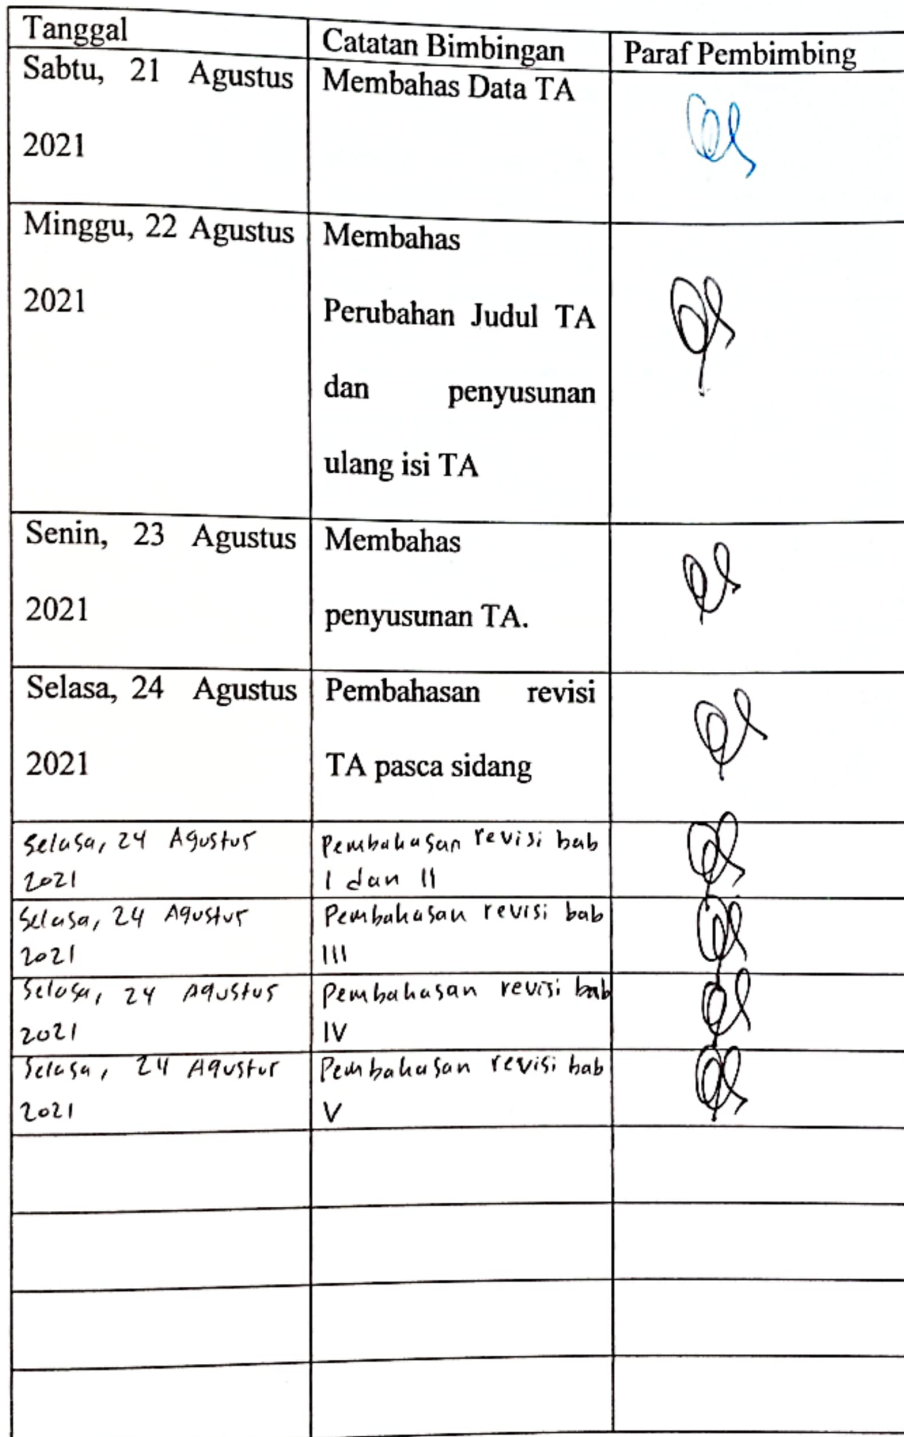 Tanggal Catatan Bimbingan Paraf Pembimbing
Sabtu, 21 Agustus
2021
Membahas Data TA
Minggu, 22 Agustus
2021
Membahas
Perubahan Judul TA
dan penyusunan
ulang isi TA
Senin, 23 Agustus
2021
Membahas
penyusunan TA.
Selasa, 24 Agustus
2021
Pembahasan revisi
TA pasca sidang
Selasa, 24 Agustus
2021
Pembahasan revisi bab
I dan II
Selasa, 24 Agustus
2021
Pembahasan revisi bab
III
Selasa, 24 Agustus
2021
Pembahasan revisi bab
IV
Selasa, 24 Agustus
2021
Pembahasan revisi bab
V